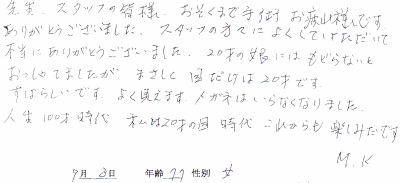 先生、スタッフの皆様、おそくまで手術 お疲れ様です
ありがとうございました。スタッフの方々に よくしていただいて
本当にありがとうございました。20才の娘には もどらないと
おっしゃてましたが まさしく 目だけは20才です。
すばらしいです。よく見えます。メガネはいらなくなりました。
人生100才時代 私は20才の目 時代 これからも 楽しみです
M.K
9月 3日 年齢 77 性別 女